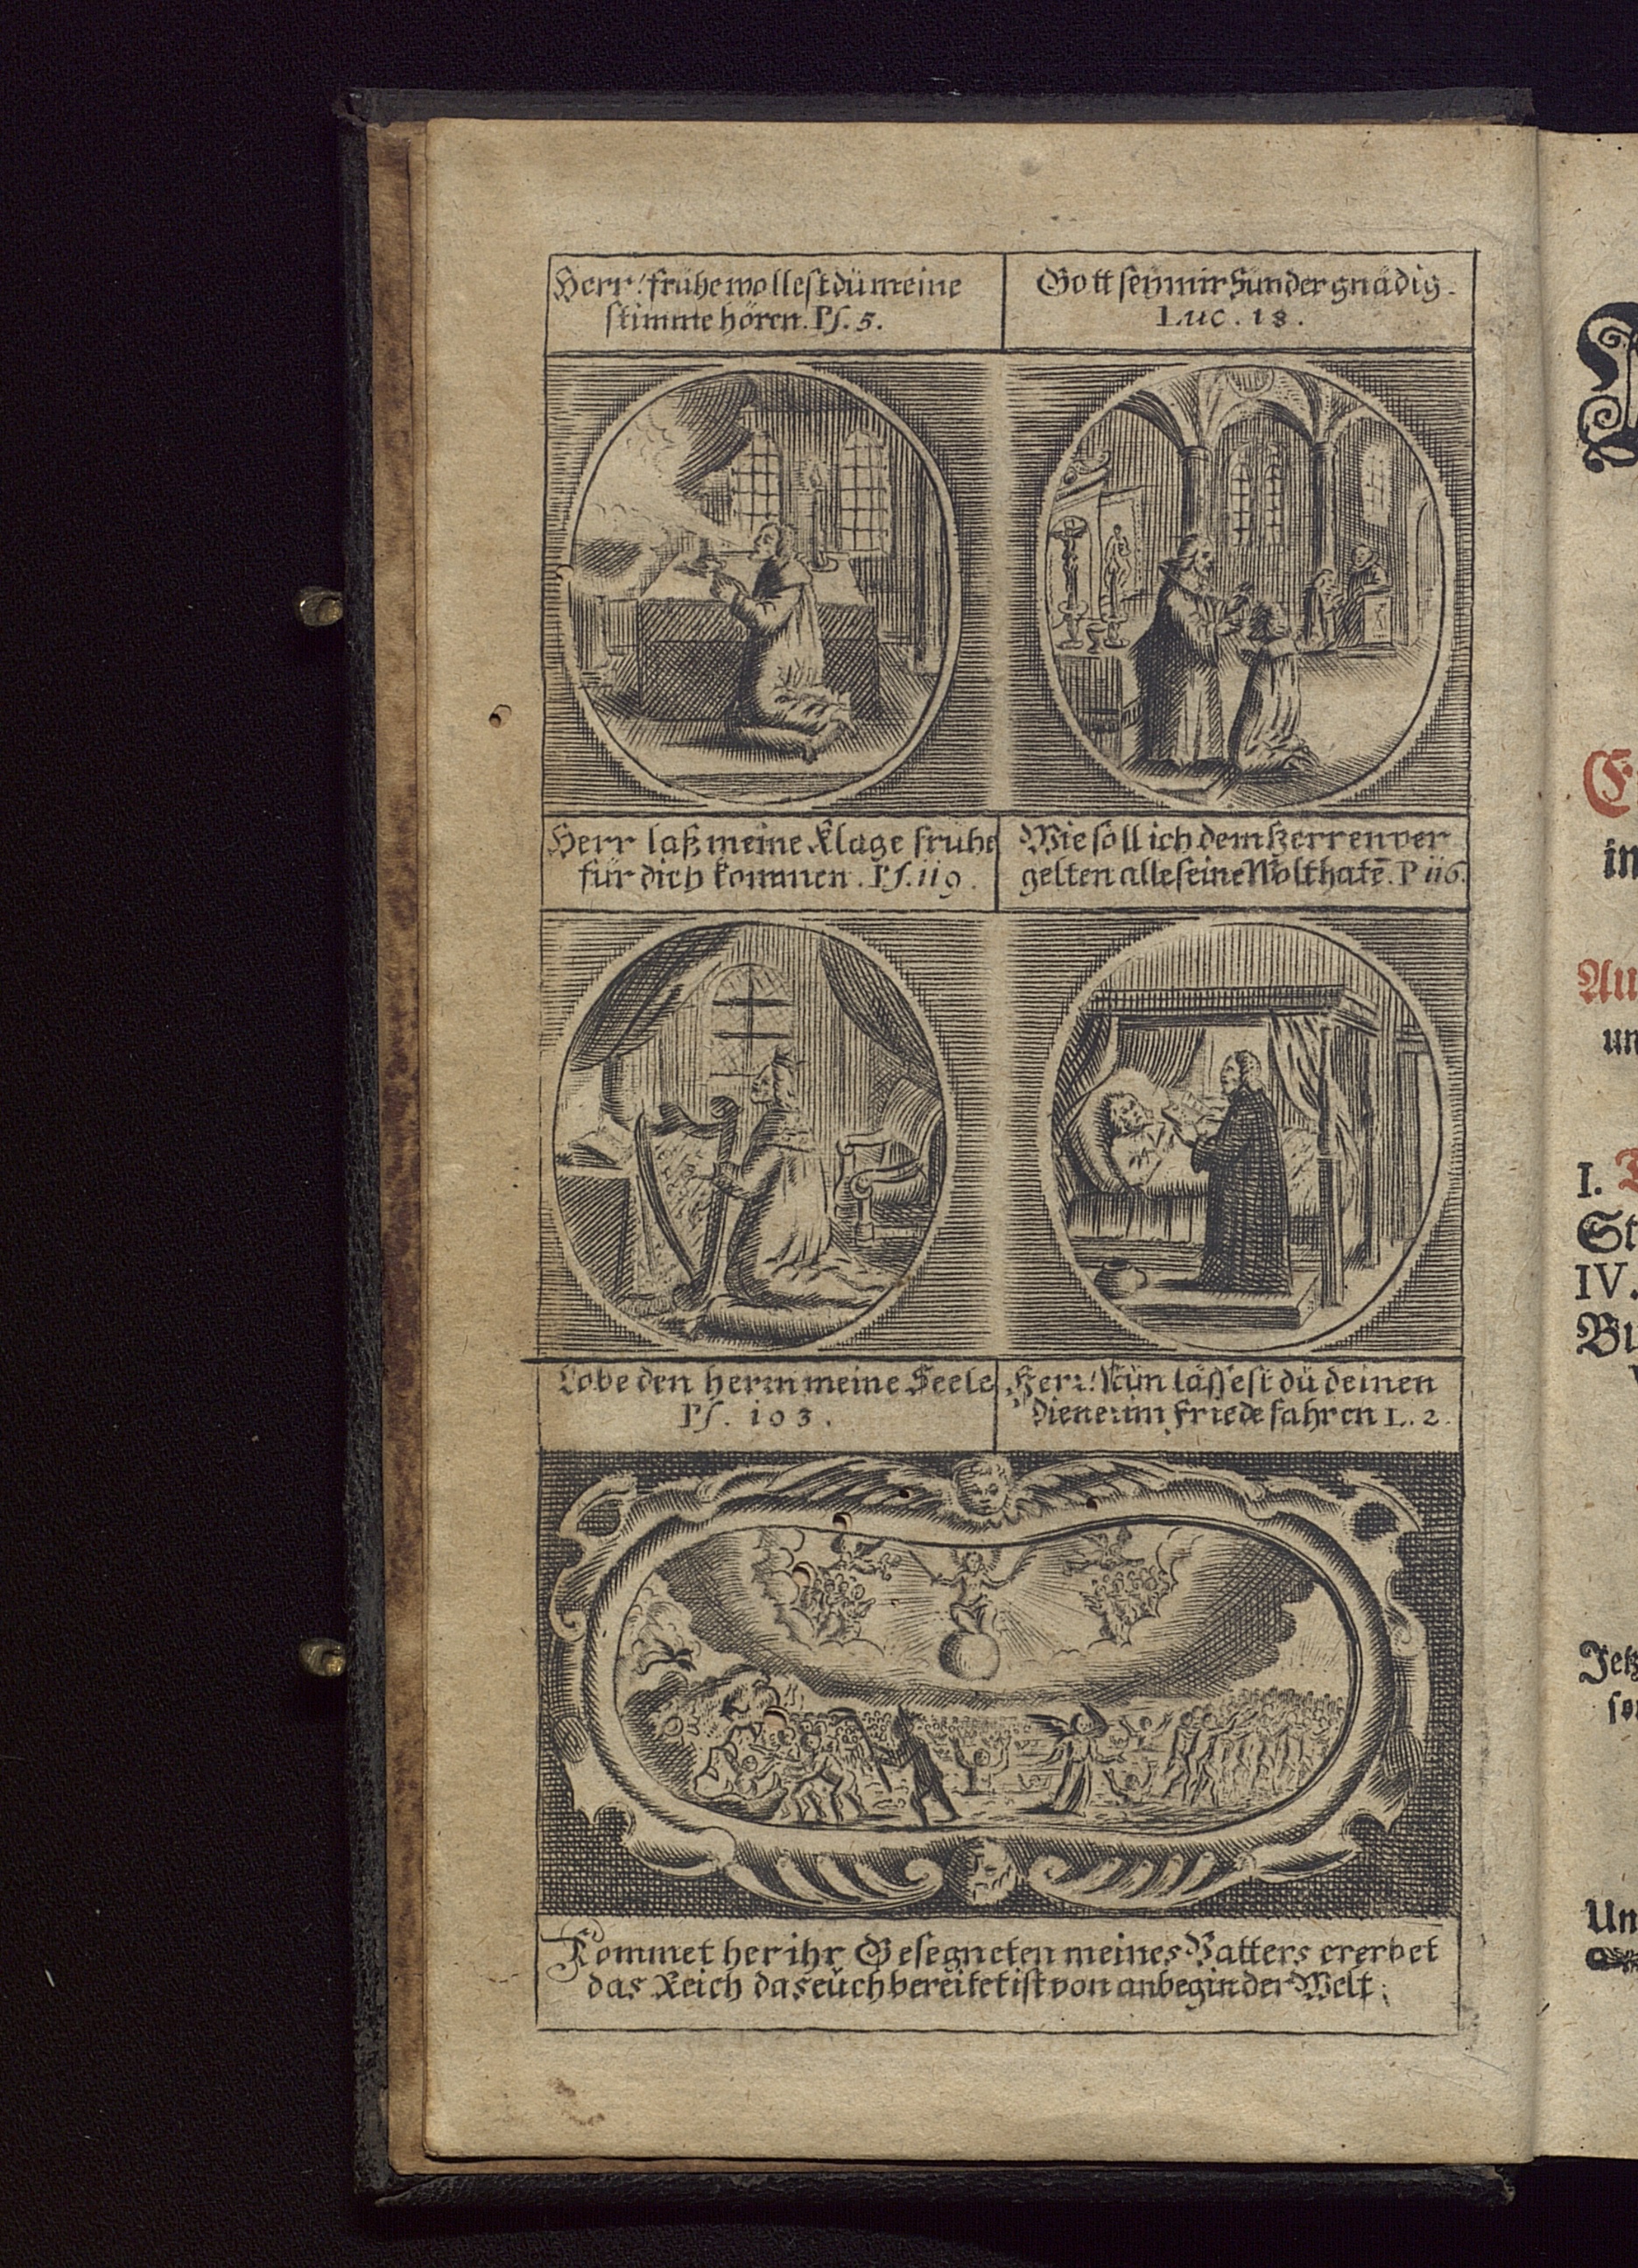 Herr! frühe wollest dü meine
stimme hören. Ps. 5.
Gott seÿ mir Sünder gnädig.
Luc. 18.
Herr laß meine Klage frühe
für dich kommen. Ps. 119.
Wie soll ich dem Herren ver
gelten alle seine Wolthatē. P 116.
Lobe den herrn meine Seele
Ps. 103.
Herr! Nün lässest dü deinen
diener im friede fahren L. 2.
Kommet her ihr Gesegneten meines Vatters ererbet
das Reich das eüch bereitet ist von anbegin der Welt.
in
Au
un
I.
St
IV.
Jetz
Un